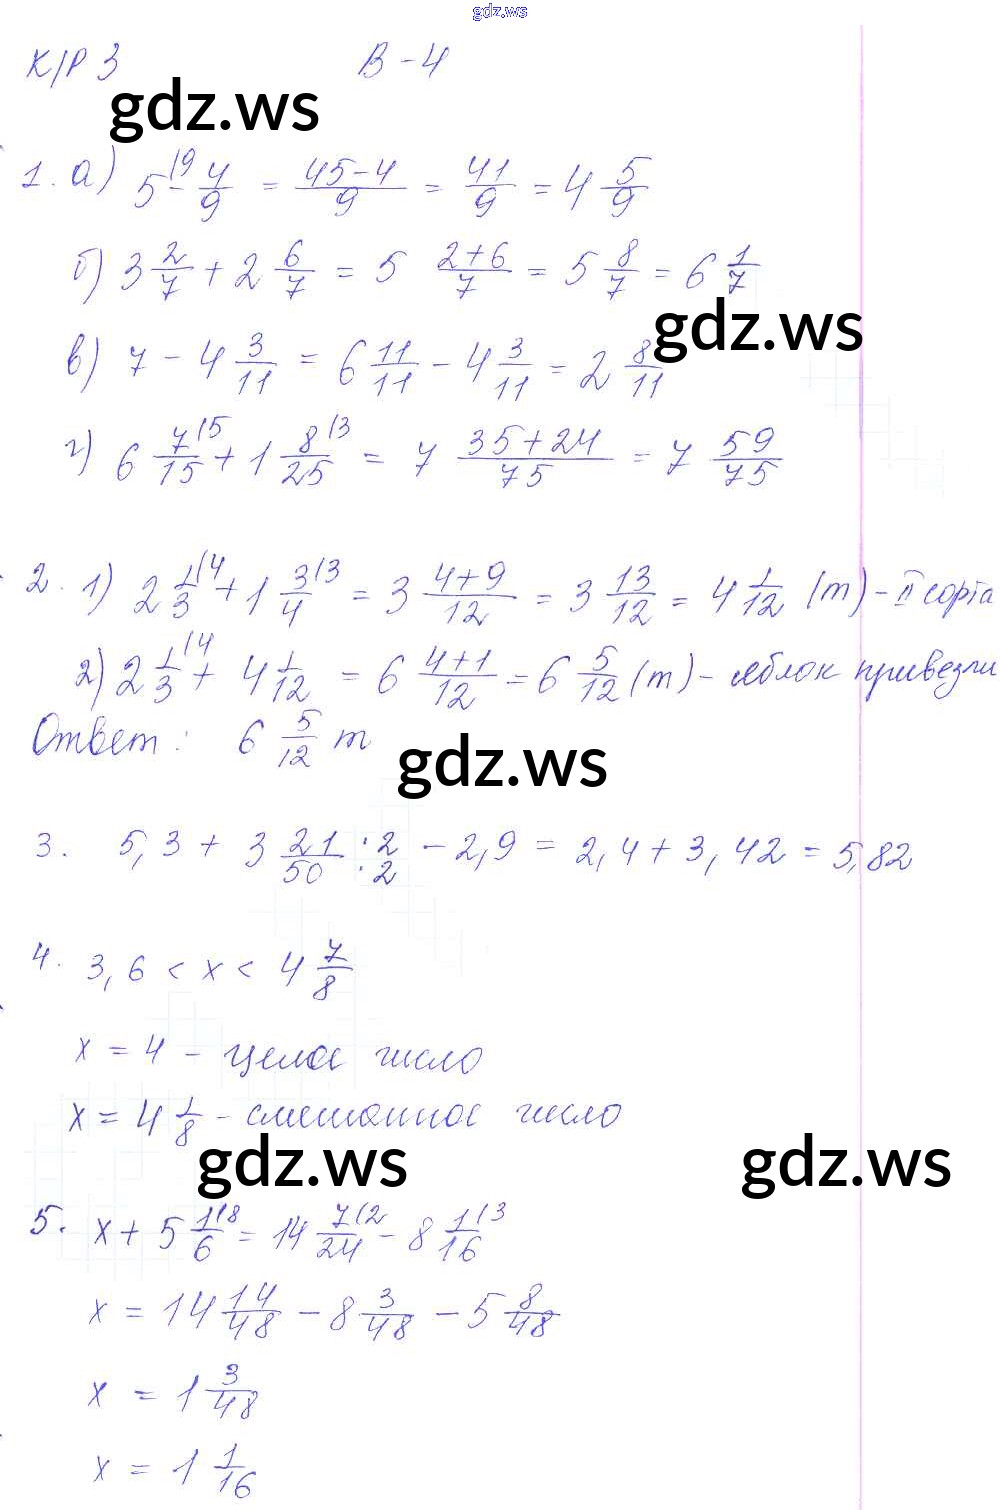 gdz.ws
К/Р 3 В-4
gdz.ws
1. а) 5^{(9} - 4/9 = (45-4)/9 = 41/9 = 4 5/9
б) 3 2/7 + 2 6/7 = 5 (2+6)/7 = 5 8/7 = 6 1/7
gdz.ws
в) 7 - 4 3/11 = 6 11/11 - 4 3/11 = 2 8/11
г) 6 7/15^{(5} + 1 8/25^{(3} = 7 (35+24)/75 = 7 59/75
2. 1) 2 1/3^{(4} + 1 3/4^{(3} = 3 (4+9)/12 = 3 13/12 = 4 1/12 (т) - II сорта
2) 2 1/3^{(4} + 4 1/12 = 6 (4+1)/12 = 6 5/12 (т) - яблок привезли
Ответ: 6 5/12 т
gdz.ws
3. 5,3 + 3 21/50 :2/:2 - 2,9 = 2,4 + 3,42 = 5,82
4. 3,6 < x < 4 7/8
x = 4 - целое число
x = 4 1/8 - смешанное число
gdz.ws gdz.ws
5. x + 5 1/6^{(8} = 14 7/24^{(2} - 8 1/16^{(3}
x = 14 14/48 - 8 3/48 - 5 8/48
x = 1 3/48
x = 1 1/16